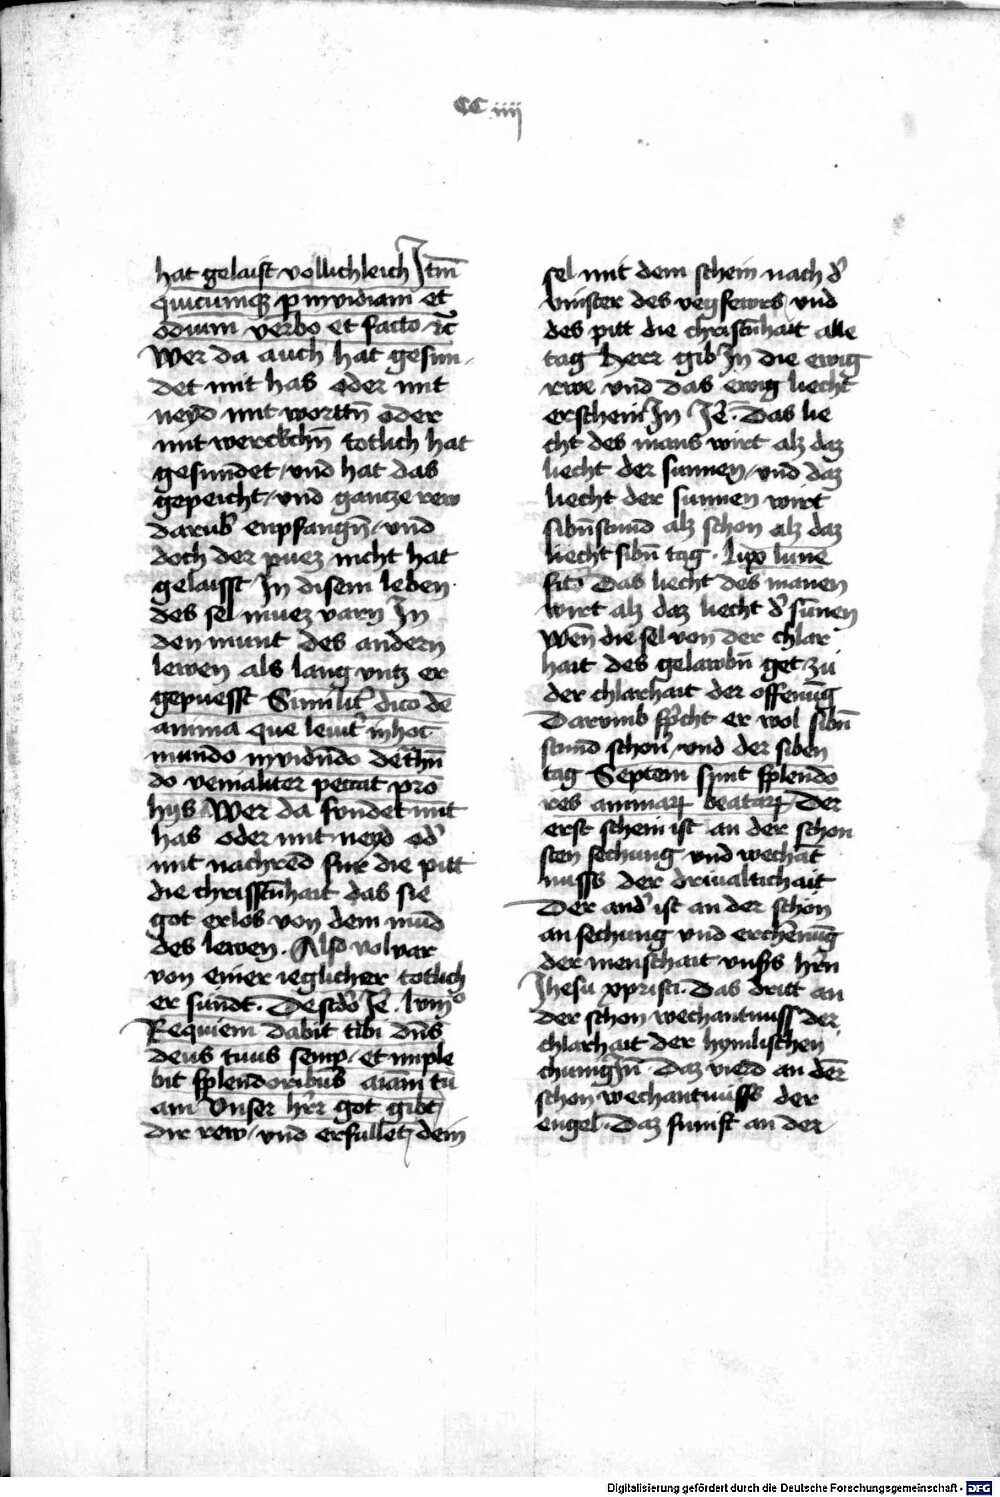 CC iiij
hat gelaist vollichleich Itm̄
quicumqꝫ p invidiam et
odium verbo et facto ⁊c̄
Wer da auch hat gesun-
det mit has oder mit
neyd mit wortt̄n oder
mit werckch̄n totlich hat
gesundet / und hat das
gepeicht / und gantze rew
darub̄ enpfanḡn / und
doch der puez nicht hat
gelaisst In disem leben
des sel muez varn In
den munt des andern
lewen als lang untz er
gepuesst Similit̄ dico de
anima que levit̄ in hoc
mundo invidendo
do venialiter peccat pro
hijs Wer da sundet mit
has oder mit neyd od̄
mit nachred fur die pitt
die christ̄nhait das sie
got erlos von dem mūd
des lewen. Also volvar
von einer ieglicher totlich
er sundt. De scd̄o Ie. lviij°
Requiem dabit tibi dn̄s
deus tuus semp / et imple
bit splendoribus aīam tu
am Unser h̄rr got gibt
dir rew / und erfulletz dein
sel mit dem schein nach d̄
vinster des vegfewrs und
des pitt die christ̄nhait alle
tag Herr gib In die ewig
rwe und das ewig liecht
erschein In Ie. Das lie
cht des mans wirt alz daz
liecht der sunnen / und daz
liecht der sunnen wirt
sib̄nstund alz schon alz daz
liecht sib̄n tag. Lux lune
sit Das liecht des manen
wirt alz daz liecht d̄ sūnen
Wen̄ die sel von der chlar
hait des gelawb̄n get zu
der chlarhait der offenūg
Darumb sp̄cht er wol sib̄n
stund schon̄ und der siben
tag Septem sunt splendo
res animaꝝ beataꝝ / Der
erst schein ist an der schon
sten sechung und wechāt
nuss der drivaltichait
Der and̄ ist an der schon
an sechung und erchēnūg
der menschait uns̄s h̄rn
Jhesu xpristi. Das dritt an
der schon wechantnuss der
chlarhait der hymlischen
chuniḡin Daz vierd an der
schon wechantnuss der
engel. Daz funft an der
Digitalisierung gefördert durch die Deutsche Forschungsgemeinschaft - DFG